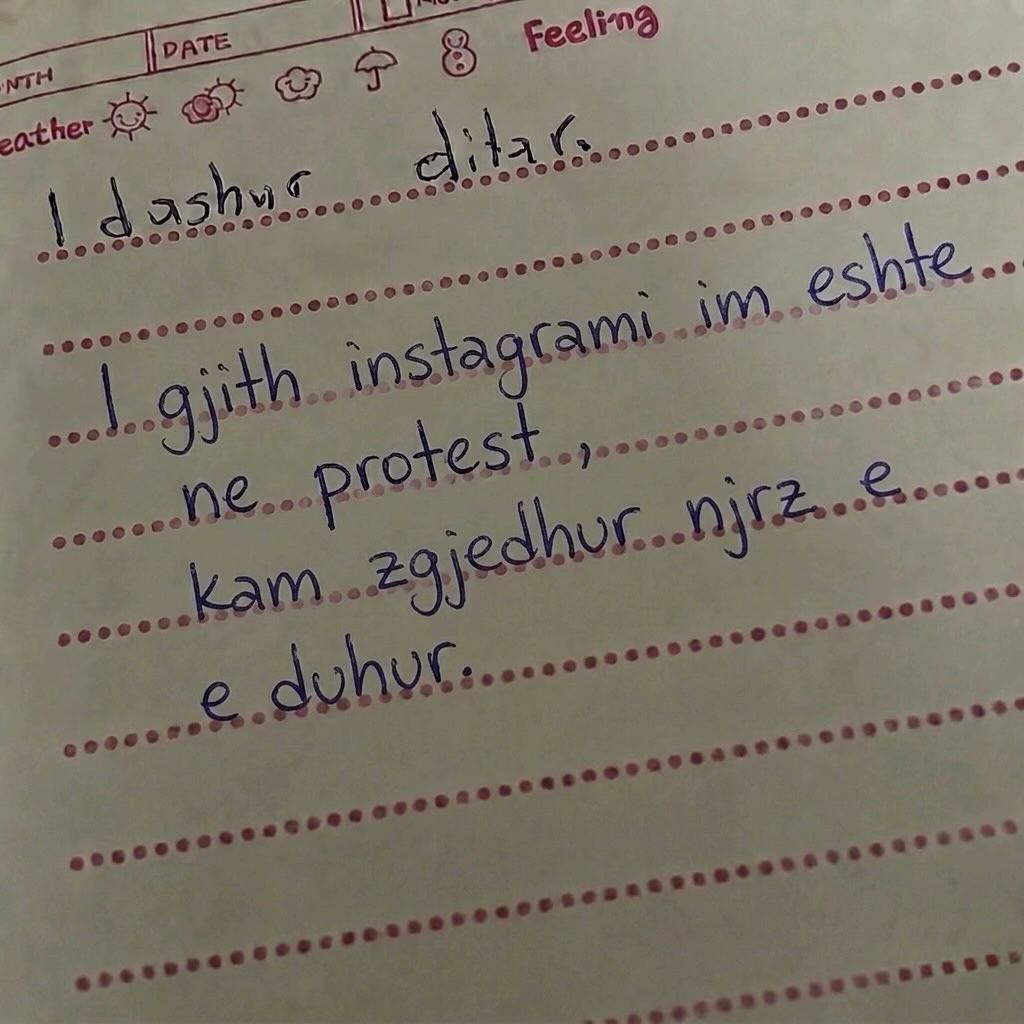 NTH DATE
eather Feeling
I dashur ditar.
I gjith instagrami im eshte
ne protest,
kam zgjedhur njrz e
e duhur.